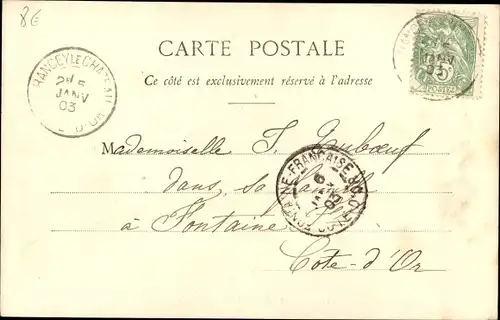 8€
CARTE POSTALE
Ce côté est exclusivement réservé à l'adresse
RANCEY LE CHATEAU
2ᴱ 5
JANV
03
Mademoiselle J. Duboeuf
dans sa famille
à Fontaine
Côte-d'Or
FONTAINE-FRANÇAISE
6
03
JANV
03
POSTES